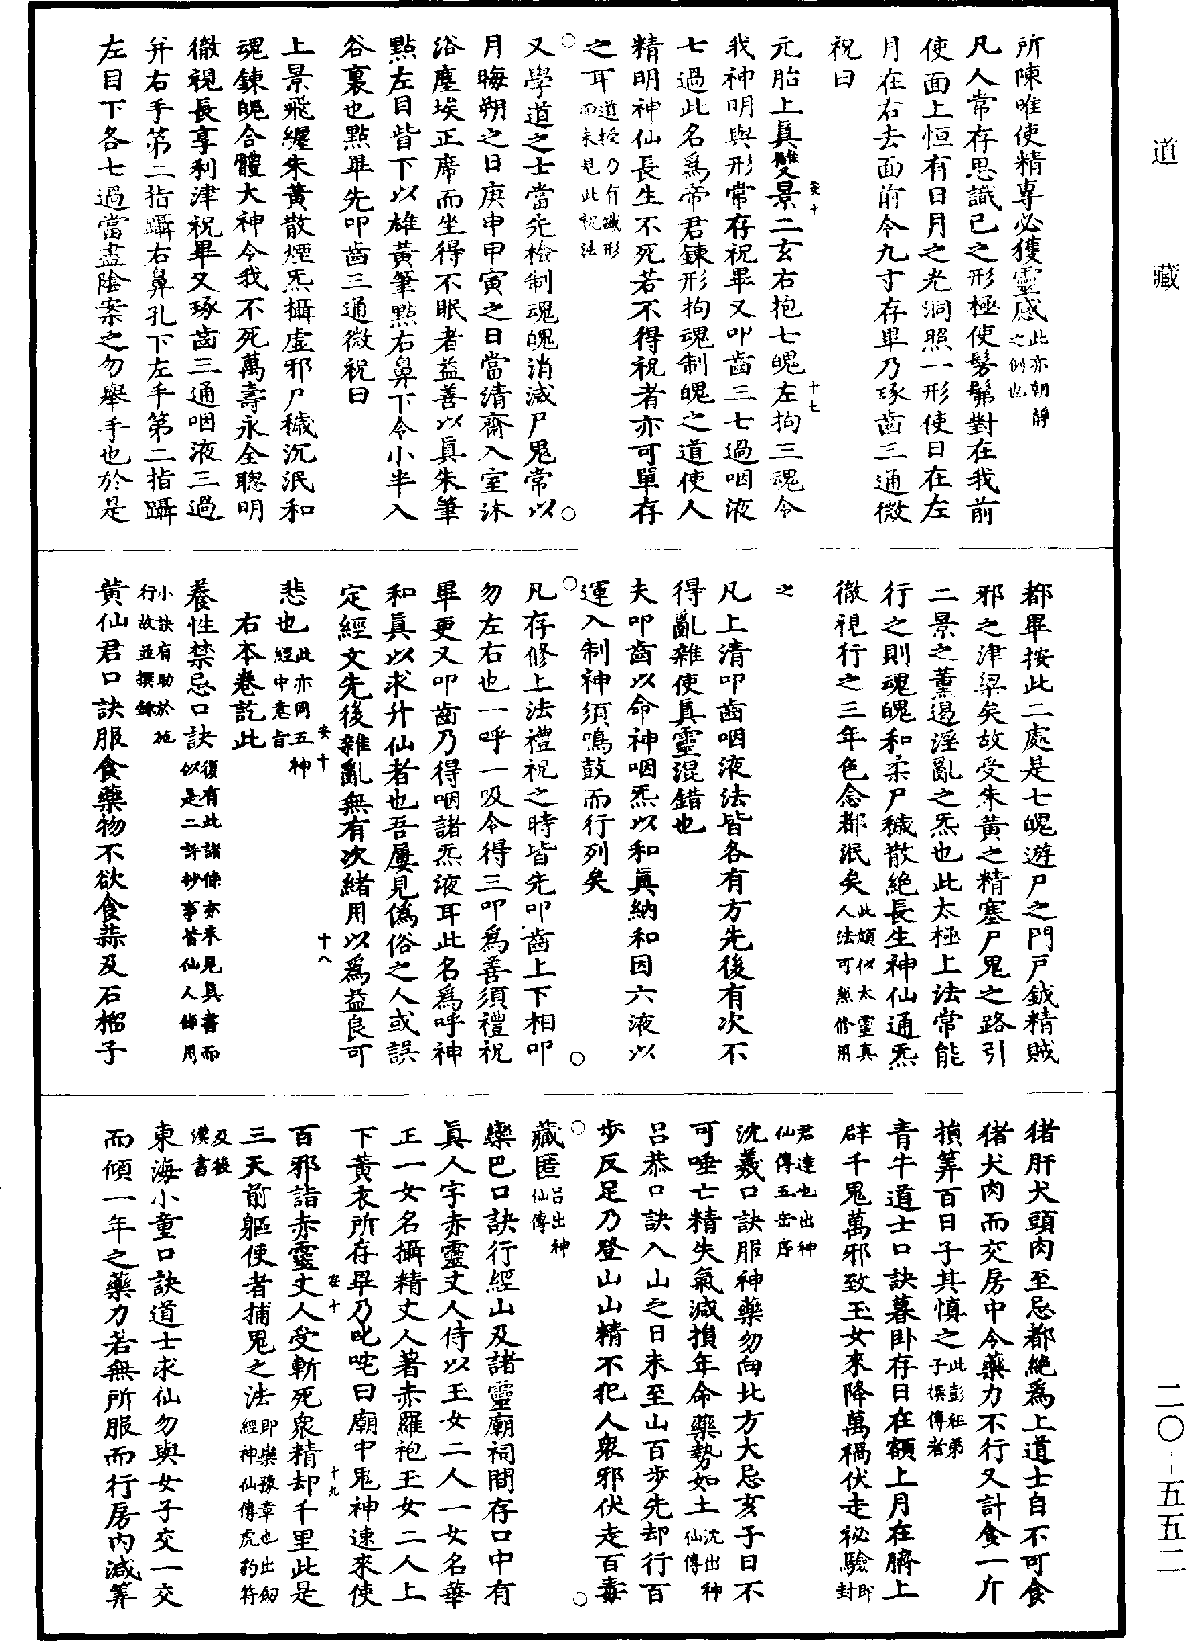 道藏
二〇-五五二
所陳唯使精專必獲靈感此亦朝靜之例也
凡人常存思識己之形極使髣髴對在我前
使面上恒有日月之光洞照一形使日在左
月在右去面前令九寸存畢乃琢齒三通微
祝曰
元胎上真雙景二玄右抱七魄左拘三魂令
安十
十七
我神明與形常存祝畢又叩齒三七過咽液
七過此名爲帝君鍊形拘魂制魄之道使人
精明神仙長生不死若不得祝者亦可單存
之耳道授乃有識形而未見此祝法
又學道之士當先檢制魂魄消滅尸鬼常以
月晦朔之日庚申甲寅之日當清齋入室沐
浴塵埃正席而坐得不眠者益善以真朱筆
點左目眥下以雄黃筆點右鼻下令小半入
谷裏也點畢先叩齒三通微祝曰
上景飛纏朱黃散煙炁攝虛邪尸穢沉泯和
魂鍊魄合體大神令我不死萬壽永全聰明
徹視長享利津祝畢又琢齒三通咽液三過
并右手第二指躡右鼻孔下左手第二指躡
左目下各七過當盡陰案之勿舉手也於是
都畢按此二處是七魄遊尸之門戶鉞精賊
邪之津梁矣故受朱黃之精塞尸鬼之路引
二景之薰遏淫亂之炁也此太極上法常能
行之則魂魄和柔尸穢散絕長生神仙通炁
徹視行之三年色念都泯矣此頗似太靈真人法可無修用
之
凡上清叩齒咽液法皆各有方先後有次不
得亂雜使真靈混錯也
夫叩齒以命神咽炁以和真納和因六液以
運入制神須鳴鼓而行列矣
凡存修上法禮祝之時皆先叩齒上下相叩
勿左右也一呼一吸令得三叩爲善須禮祝
畢更又叩齒乃得咽諸炁液耳此名爲呼神
和真以求升仙者也吾屢見僞俗之人或誤
定經文先後雜亂無有次緒用以爲益良可
安十
十八
悲也此亦同五神經中意旨
右本卷訖此
養性禁忌口訣復有此諸條亦未見真書而似是二許抄事皆仙人條用
小訣有助於施行故並撰錄
黃仙君口訣服食藥物不欲食蒜及石榴子
猪肝犬頭肉至忌都絕爲上道士自不可食
猪犬肉而交房中令藥力不行又計食一斤
損筭百日子其慎之此彭祖弟子撰傳者
青牛道士口訣暮卧存日在額上月在臍上
辟千鬼萬邪致玉女來降萬禍伏走祕驗即封
君達也出神仙傳五岳序
沈羲口訣服神藥勿向北方大忌亥子日不
可唾亡精失氣減損年命藥勢如土沈出神仙傳
呂恭口訣入山之日未至山百步先却行百
步反足乃登山山精不犯人衆邪伏走百毒
藏匿呂出神仙傳
欒巴口訣行經山及諸靈廟祠間存口中有
真人字赤靈丈人侍以玉女二人一女名華
正一女名攝精丈人著赤羅袍玉女二人上
下黃衣所存畢乃叱咤曰廟中鬼神速來使
安十
十九
百邪詣赤靈丈人受斬死衆精却千里此是
三天前驅使者捕鬼之法即欒豫章也出劍經神仙傳虎豹符
及後漢書
東海小童口訣道士求仙勿與女子交一交
而傾一年之藥力若無所服而行房內減筭